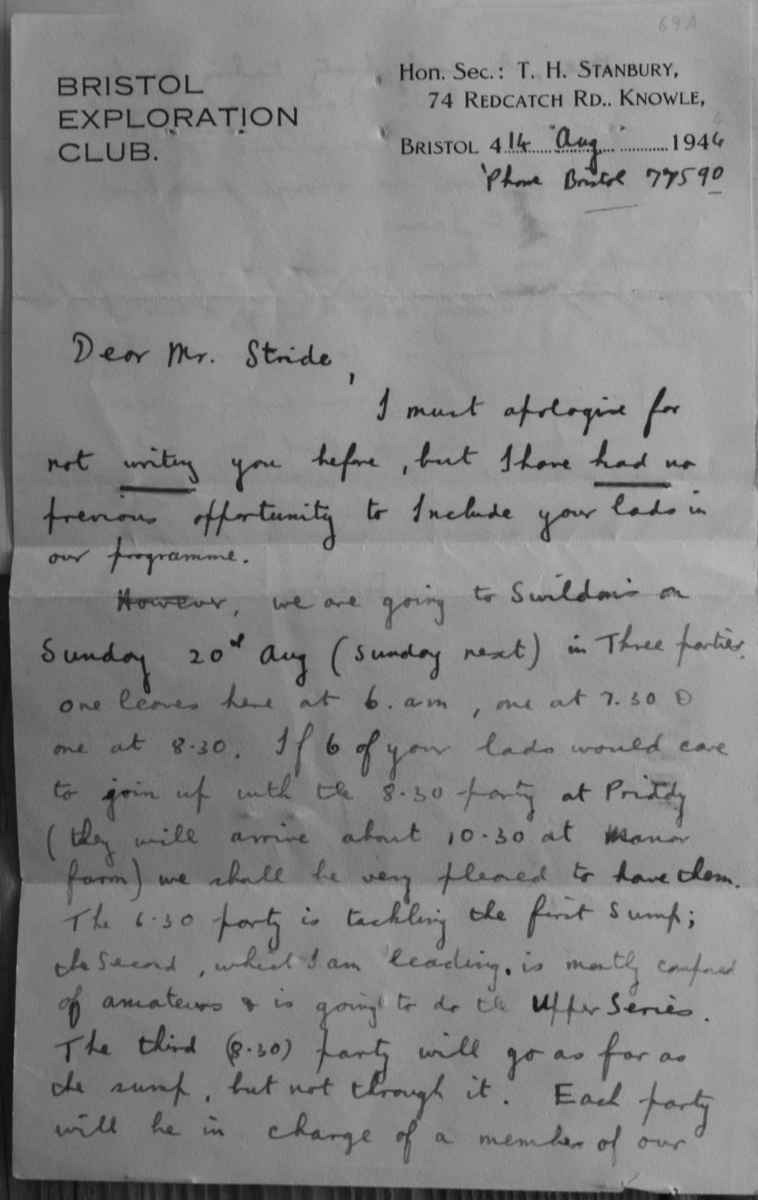 69A
BRISTOL
EXPLORATION
CLUB.
Hon. Sec.: T. H. STANBURY,
74 REDCATCH RD., KNOWLE,
BRISTOL 4 14 Aug 1944
'Phone Bristol 77590
Dear Mr. Stride,
I must apologise for
not writing you before, but I have had no
previous opportunity to Include your lads in
our programme.
However, we are going to Swildon's on
Sunday 20th Aug (Sunday next) in Three parties.
one leaves here at 6. am, one at 7.30 &
one at 8.30. If 6 of your lads would care
to join up with the 8.30 party at Priddy
(they will arrive about 10.30 at Manor
farm) we shall be very pleased to have them.
The 6.30 party is tackling the first Sump;
the Second, which I am leading, is mostly composed
of amateurs & is going to do the Upper Series.
The third (8.30) party will go as far as
the sump, but not through it. Each party
will be in charge of a member of our